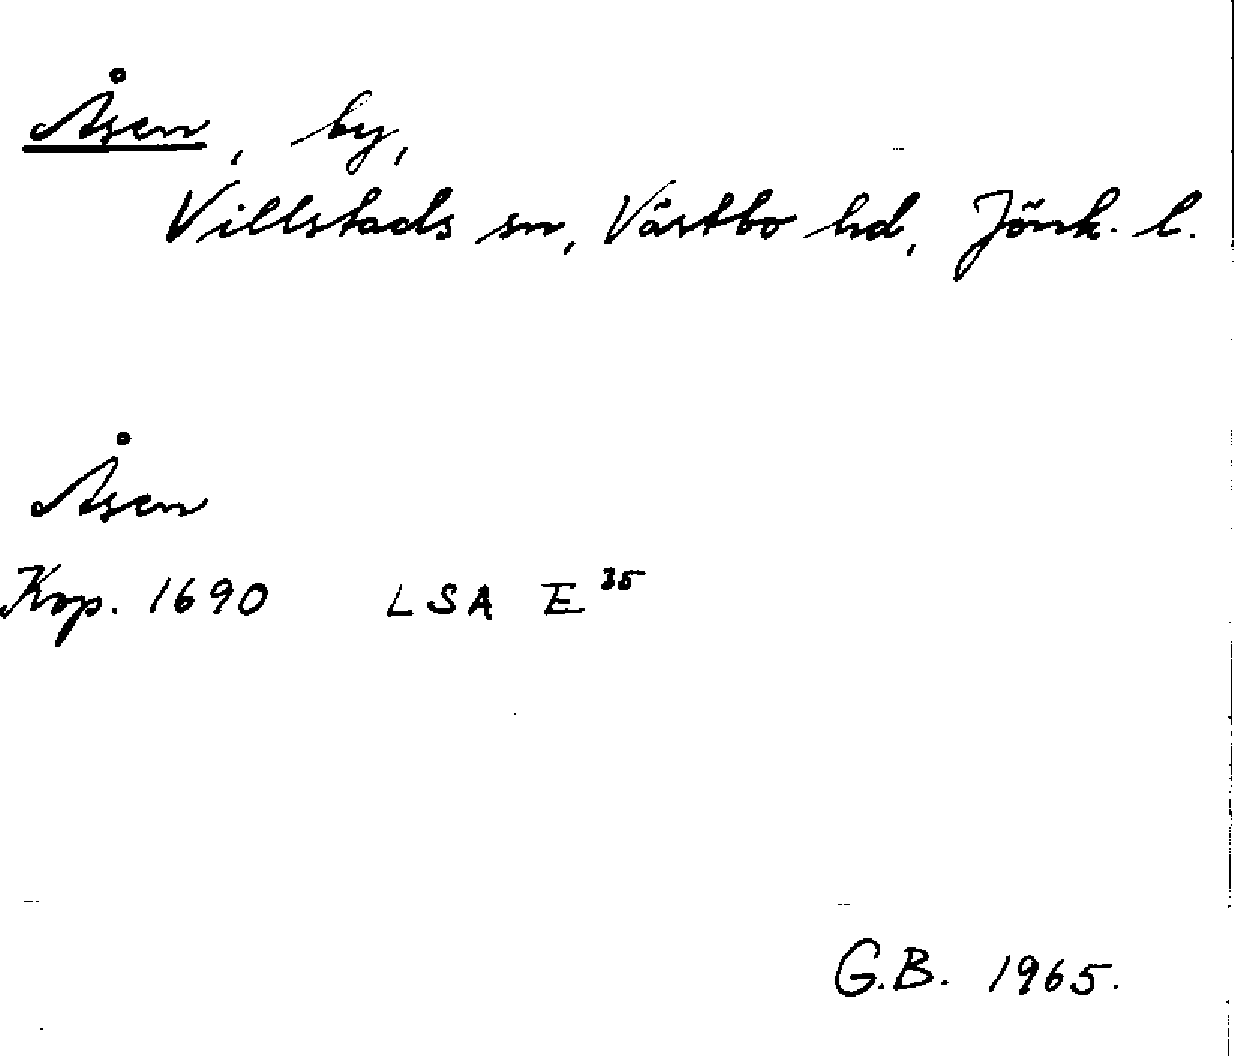 Åsen, by,
Villstads sn, Västbo hd, Jönk. l.
Åsen
Kop. 1690 LSA E 35
G.B. 1965.